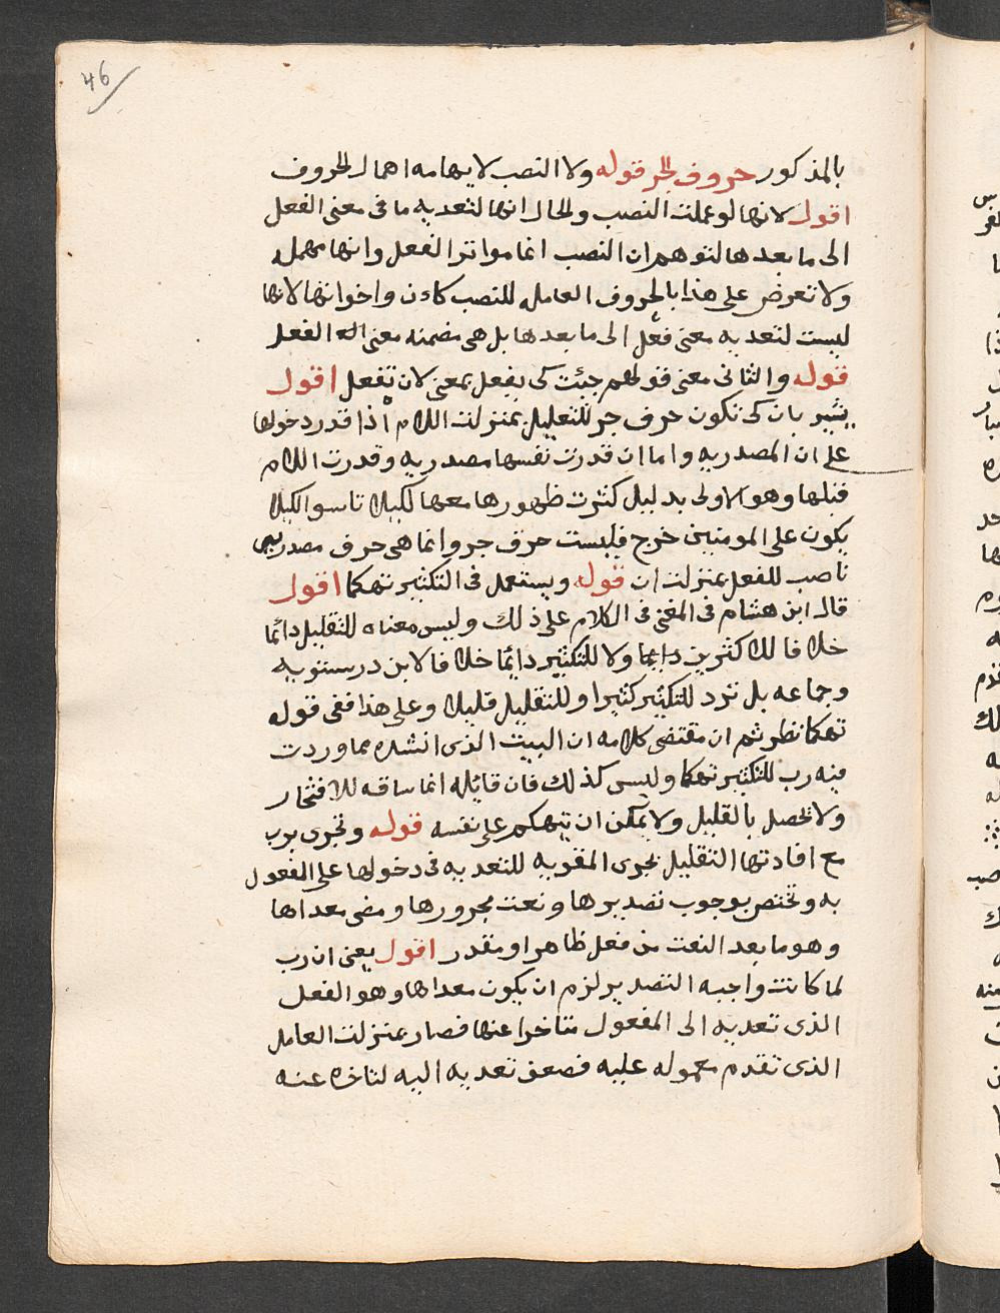 46
بالمذكور حروف الجر قوله ولا النصب لايهامه اهمال الحروف
اقول لانها لو عملت النصب والحال انها لتعديه ما فى معنى الفعل
الى ما بعدها لتوهم ان النصب انما هو اثر الفعل وانها مهمله
ولا تعرض على هذا بالحروف العامله للنصب كان واخواتها لانها
ليست لتعديه معنى فعل الى ما بعدها بل هى مضمنه معنى الفعل
قوله والثانى معنى قولهم جئت كى يفعل بمعنى لان تفعل اقول
يشير بان كى تكون حرف جر للتعليل بمنزلت اللام اذا قدر دخولها
على ان المصدريه واما ان قدرت نفسها مصدريه وقدرت اللام
قبلها وهو الاولى بدليل كثرت ظهورها معها لكيلا تاسوا لكيلا
يكون على المومنين خرج فليست حرف جر وانما هى حرف مصدريه
ناصب للفعل بمنزلت ان قوله ويستعمل فى التكثير تهكما اقول
قال ابن هشام فى المغنى فى الكلام على ذلك وليس معناه للتقليل دائما
خلافا للاكثرين دايما ولا للتكثير دايما خلافا لابن درستويه
وجماعه بل ترد للتكثير كثيرا وللتقليل قليلا وعلى هذا ففى قوله
تهكما نظر ثم ان مقتضى كلامه ان البيت الذى انشده مما وردت
فيه رب للتكثير تهكما وليس كذلك فان قائله انما ساقه للافتخار
ولا تحصل بالقليل ولا يمكن ان يتهكم على نفسه قوله وتجرى برب
مع افادتها التقليل مجرى المقويه للتعديه فى دخولها على المفعول
به وتختص بوجوب تصديرها ونعت مجرورها ومضى معداها
وهو ما بعد النعت من فعل ظاهر او مقدر اقول يعنى ان رب
لما كانت واجبه التصدير لزم ان يكون معداها وهو الفعل
الذى تعديه الى المفعول متاخرا عنها فصار بمنزلت العامل
الذى تقدم معموله عليه فضعف تعديه اليه لتاخره عنه